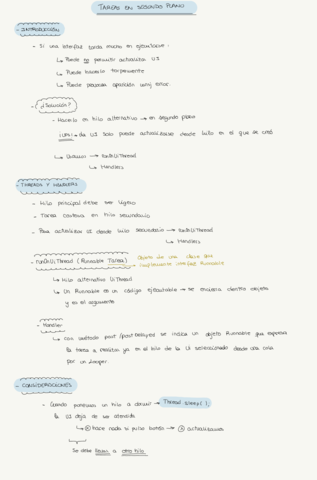 TAREAS EN SEGUNDO PLANO
- INTRODUCCIÓN
- Si una interfaz tarda mucho en ejecutarse:
↳ Puede no permitir actualizar UI
↳ Puede hacerlo torpemente
↳ Puede aparición error.
- ¿Solución?
- Hacerlo en hilo alternativo → en segundo plano
UI solo puede actualizarse desde hilo en el que se creó
↳ → RunOnUiThread
↳ Handlers
- THREADS Y HANDLERS
- Hilo principal debe ser ligero
- Tarea costosa en hilo secundario
- Para actualizar UI desde hilo secundario → RunOnUiThread
↳ Handlers
- runOnUiThread (Runnable Tarea) → Objeto de una clase que
implementa interfaz Runnable
↳ Hilo alternativo UiThread
↳ Un Runnable es un código ejecutable → se encierra dentro objeto
y es el argumento
- Handler
↳ Con método post / postDelayed se indica un objeto Runnable que expresa
la tarea a realizar ya en el hilo de la UI seleccionado desde una cola
por un Looper.
- CONSIDERACIONES
- Cuando ponemos un hilo a dormir → Thread.sleep( );
la UI deja de ser atendida
↳ hace nada si pulso botón → actualizaciones
Se debe llevar a otro hilo